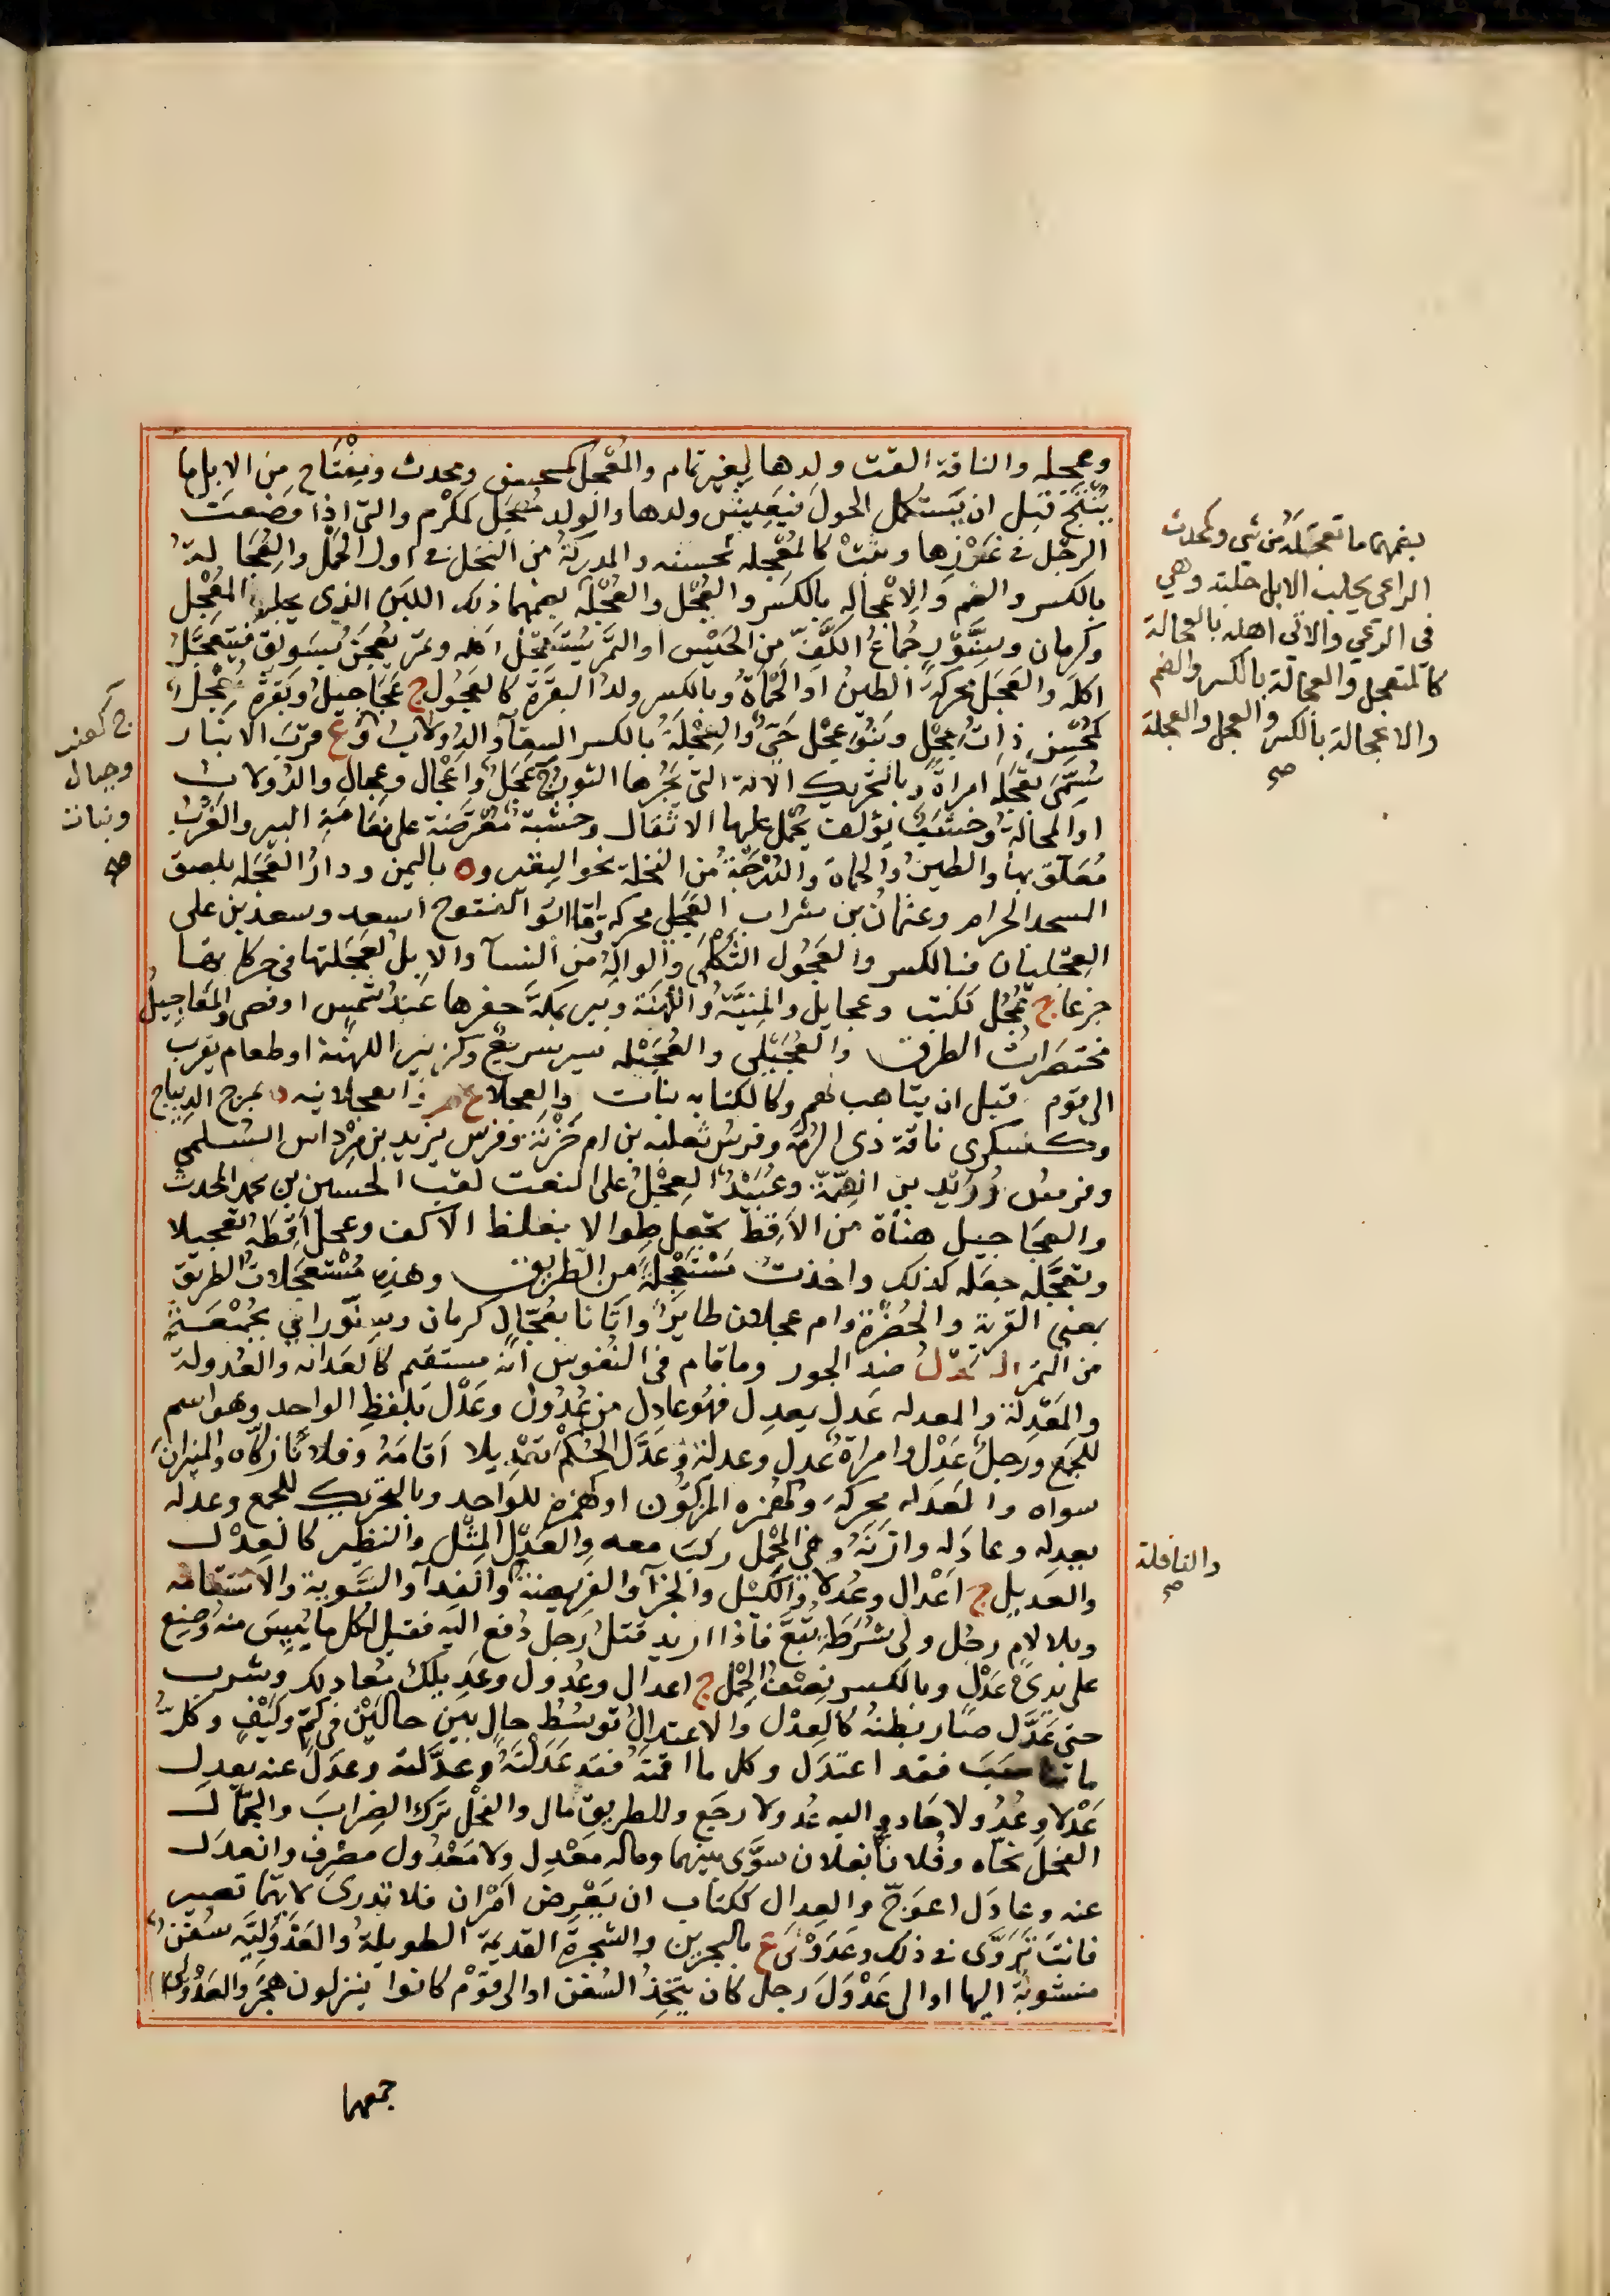 وعجله والناقة القت ولدها لغير تمام والمعجل كمحسن ومحدث ومفتاح من الابل ما
يُنْتَج قبل ان يستكمل الحول فيعيش ولدها والولد معجل كمكرم والتى اذا وضعت
الرجل فى غرزها وثبت كالمعجله كحسنه والمدركة من النخل فى اول الحمل والعجالة
بالكسر والضم والاعجاله بالكسر والعجل والعجلة بضمهما ذلك اللبن الذى يحلبه المعجل
وكرمان وسِنَّوْر جُماعُ الكَفّ من الحَيْس او التمر يستعجل اكله وتمر يعجن بسويق فيتعجل
اكله والعَجَل محركة الطين او الحمأة وبالكسر ولد البقرة كالعجول ج عجاجيل وبقرة معجل
كمحسن ذات عجل وبنو عجل حى والعجلة بالكسر السقآ والدولاب و ع قرب الانبار
سمى بعجلة امراة وبالتحريك الالة التى يجرها الثور ج عجل واعجال وعجال والدولاب
او المحالة وخشب يؤلف يحمل عليها الاثقال وخشبة معترضة على نعامة البير والغرب
معلق بها والطين والحماة والدرجة من النخلة نحو النقير و ة باليمن ودار العجله بلصق
المسجد الحرام وعثمان بن شراب العجلى محركة واما ابو الفتوح اسعد وسعد بن على
العجليان فبالكسر والعَجُول الثكلى والواله من النسآ والابل لعجلتها فى حركاتها
جزعا ج عجل ككتب وعجايل والمنية واللهنة وبير بمكة حفرها عبد شمس او قصى والمعاجيل
مختصرات الطرق والعُجَيلى والعُجَيله سير سريع وكزبير اللهنة او طعام يقرب
الى قوم قبل ان يتاهب لهم وكالكنابه نبات والعجلا ع والعجلانيه د بمرج الديباج
وكسكرى ناقة ذى الرمة وفرس ثعلبه بن ام حزنة وفرس يزيد بن مرداس السلمى
وفرس دريد بن الصمة وعبيد العجل على النعت لقب الحسين بن محمد المحدث
والعجاجيل هناة من الاقط تجعل طوالا بغلظ الاكف وعجل اقطه تعجيلا
وتعجله جعله كذلك واخذت مستعجلة من الطريق وهذه مستعجلات الطريق
بمعنى القربة والخضرة وام عجلان طاير واتانا بعجال كرمان وسنور اى بجمعة
من التمر العدل ضد الجور وما قام فى النفوس انه مستقيم كالعداله والعدولة
والمَعْدِلة والمعدله عدل يعدل فهو عادل من عدول وعدل بلفظ الواحد وهو اسم
للجمع ورجل عدل وامراة عدل وعدلة وعدل الحكم تعديلا اقامه وفلانا زكاه والميزان
سواه والعدله محركة وكهمزه المزكون او كهمزة للواحد وبالتحريك للجمع وعدله
يعدله وعادله وازنه وفى المحمل ركب معه والعدل المثل والنظير كالعدل
والعديل ج اعدال وعدلا والكيل والجزآ والفريضة والفدآ والسوية والاستقامه
وبلا لام رجل ولى شرطة تبع فاذا اريد قتل رجل دفع اليه فقيل لكل ما ييس منه وضع
على يدى عدل وبالكسر نصف الحمل ج اعدال وعدول وعديلك معادلك وشرب
حتى عدل صار بطنه كالعدل والاعتدال توسط حال بين حالين فى كم وكيف وكل
ما تناسب فقد اعتدل وكل ما اقمته فقد عدلته وعدلته وعدل عنه يعدل
عدلا وعدولا حاد واليه عدولا رجع والطريق مال والفحل ترك الضراب والجمال
الفحل نحاه وفلانا بفلان سوى بينهما وماله معدل ولا معدول مصرف وانعدل
عنه وعادل اعوج والعدال ككتاب ان يعرض امران فلا تدرى لايهما تصير
فانت تروى فى ذلك وعدولى ع بالبحرين والشجرة القديمة الطويلة والعدولية سفن
منسوبة اليها او الى عدول رجل كان يتخذ السفن او الى قوم كانوا ينزلون هجر والعدولى
جمعها
بضمهما ما تعجلته من شى وكمحدث
الراعى يحلب الابل حلبة وهى
فى الرعى والاتى اهله بالعجالة
كالمتعجل والعجالة بالكسر والضم
والاعجالة بالكسر والعجل والعجلة
صح
ج كعنب
وجبال
ونبات
صح
والنافلة
صح